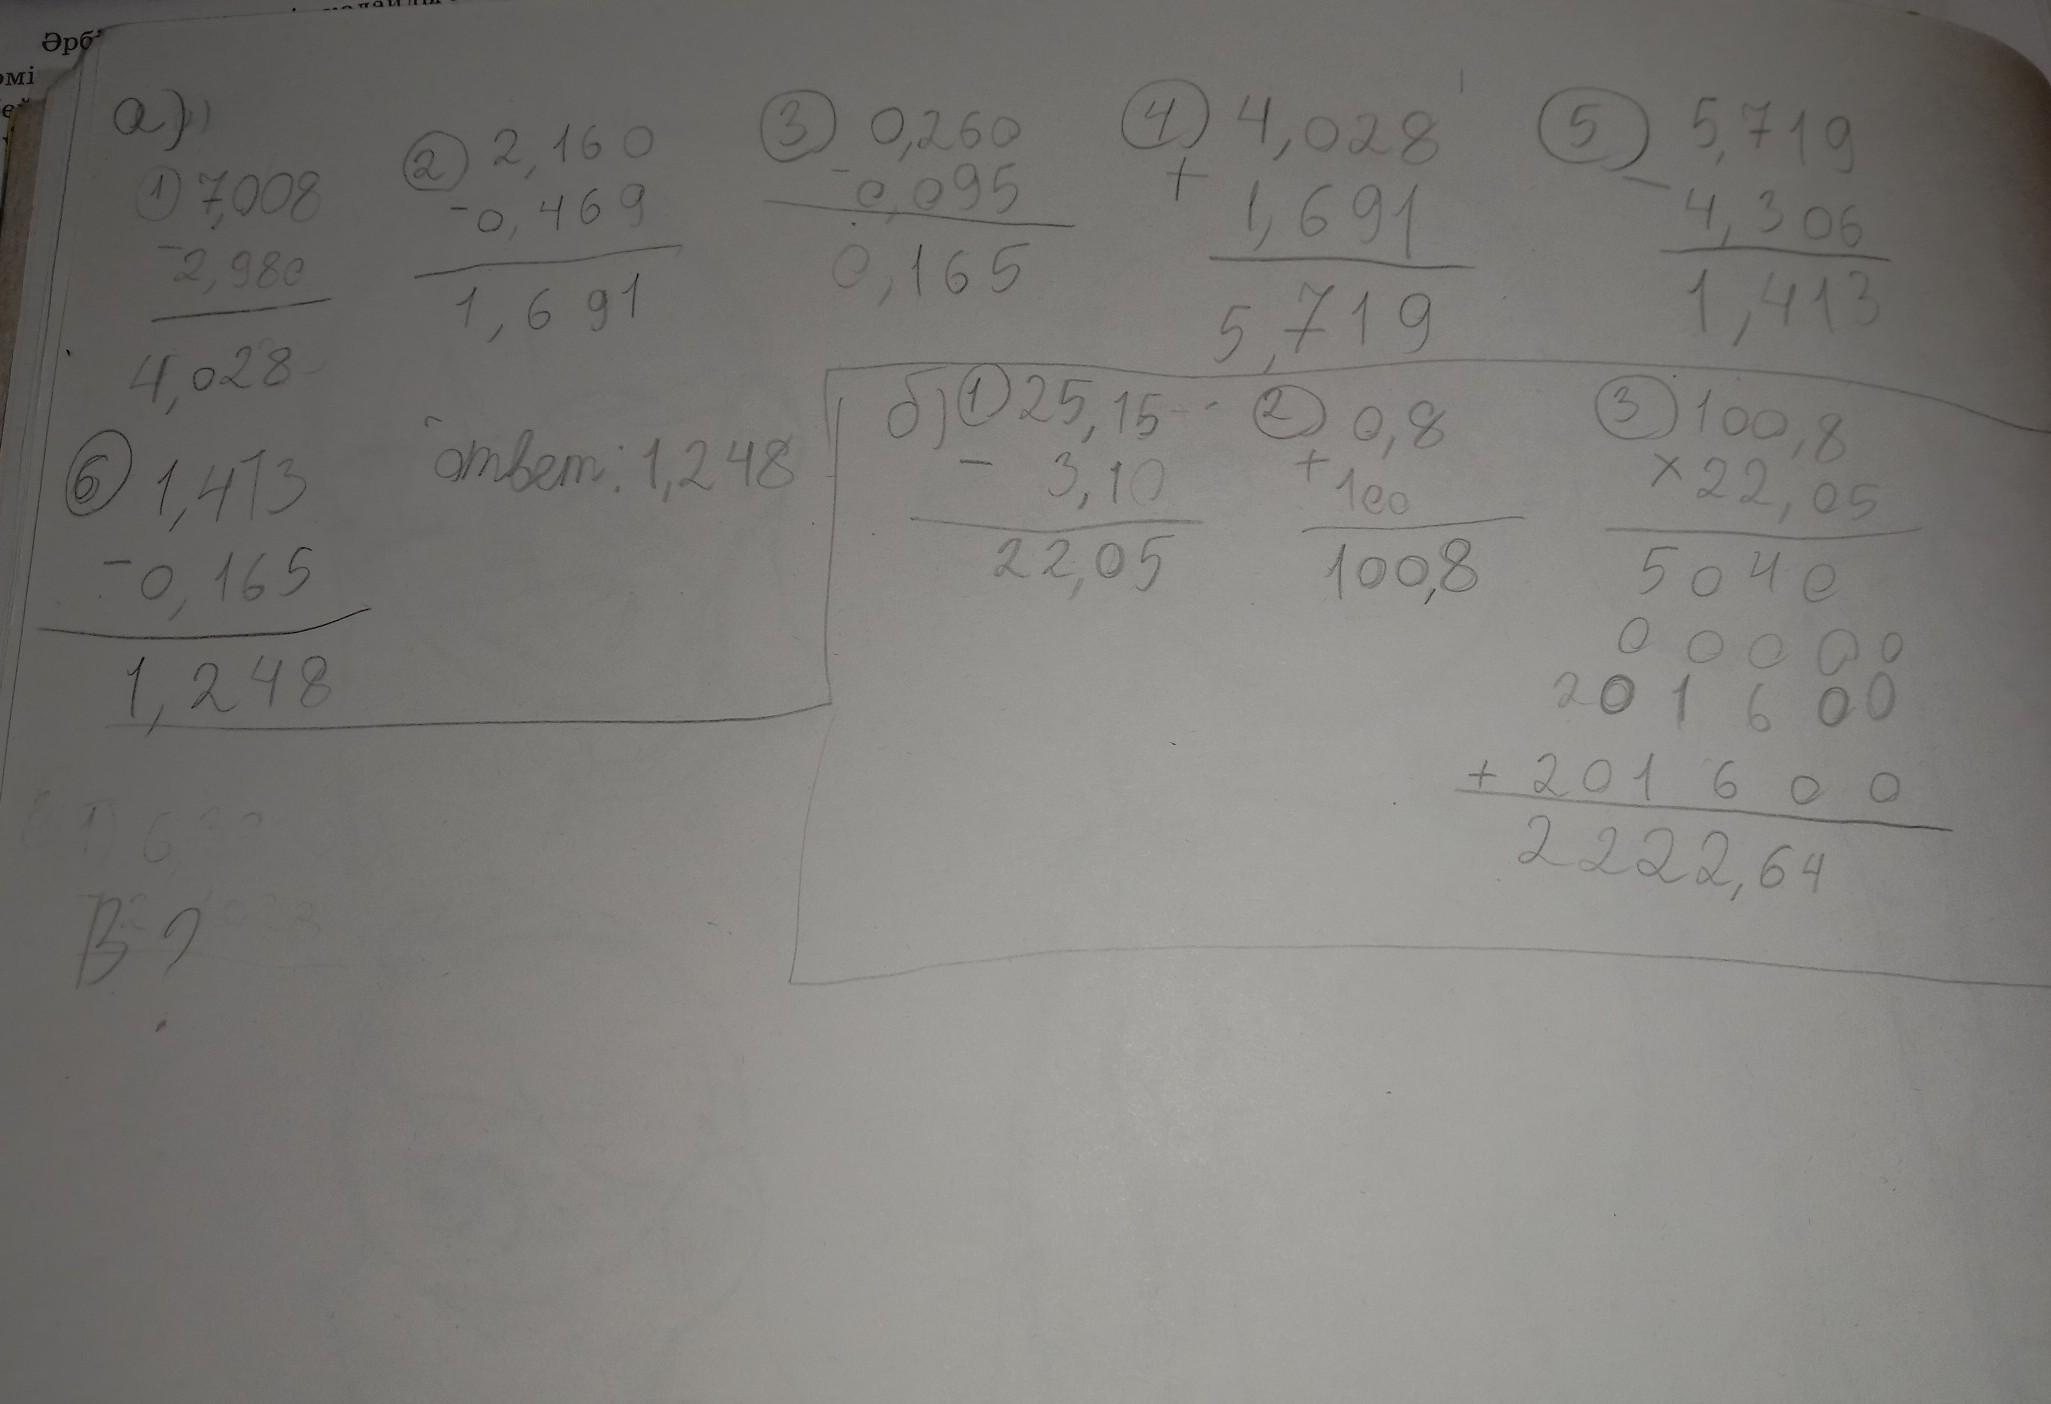 Әрб
омі
а)
① 7,008
- 2,980
4,028
② 2,160
- 0,469
1,691
③ 0,260
- 0,095
0,165
④ 4,028
+ 1,691
5,719
⑤ 5,719
- 4,306
1,413
⑥ 1,413
- 0,165
1,248
ответ: 1,248
б) ① 25,15
- 3,10
22,05
② 0,8
+ 100
100,8
③ 100,8
× 22,05
5040
00000
201600
+ 201600
2222,64
В ?